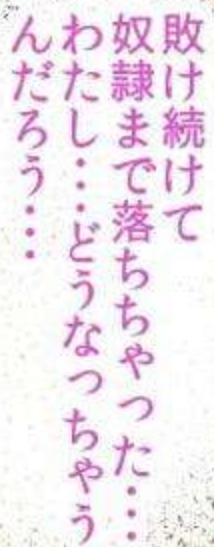 敗け続けて
奴隷まで落ちちゃった…
わたし…どうなっちゃう
んだろう…